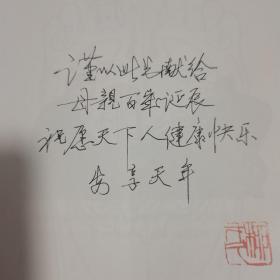 谨以此书献给
母親百年诞辰
祝愿天下人健康快乐
安享天年